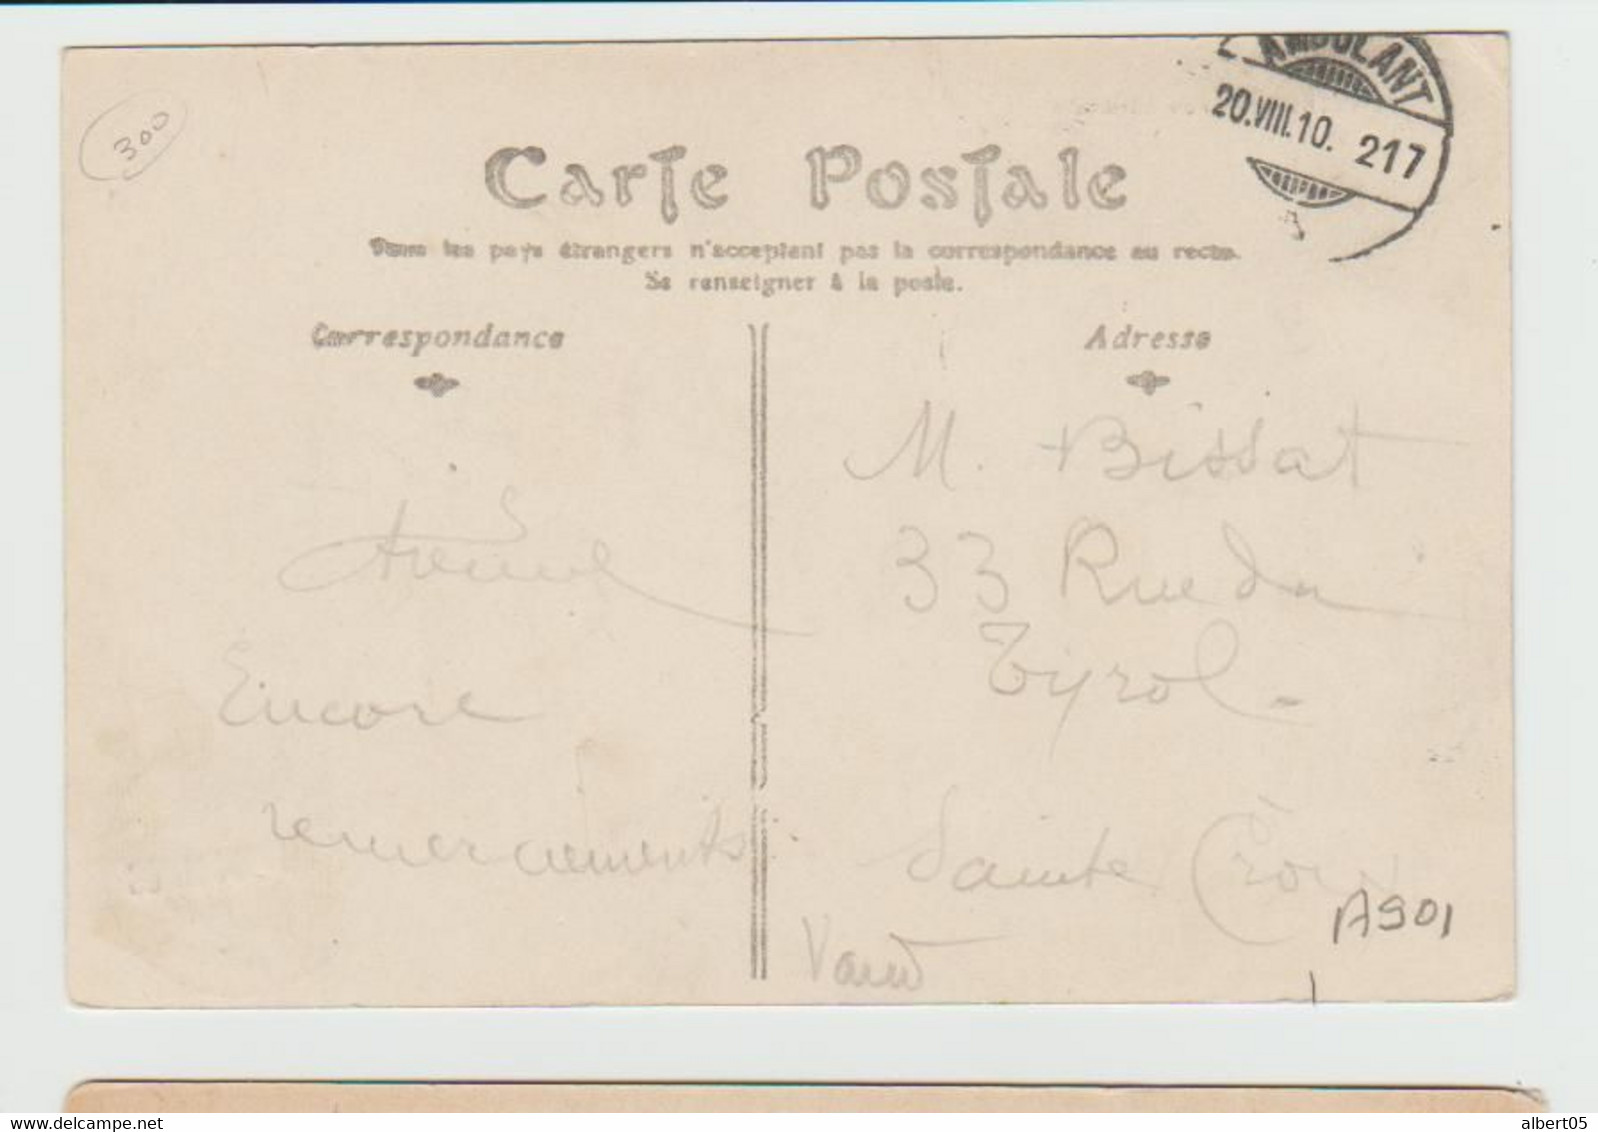 300
AMBULANT
20.VIII.10. 217
Carte Postale
Tous les pays étrangers n'acceptent pas la correspondance au recto.
Se renseigner à la poste.
Correspondance
Adresse
M. Bissat
33 Rue du
Tyrol
Encore
remerciements
Sainte Croix
Vaud
A901
delcampe.net
albert05